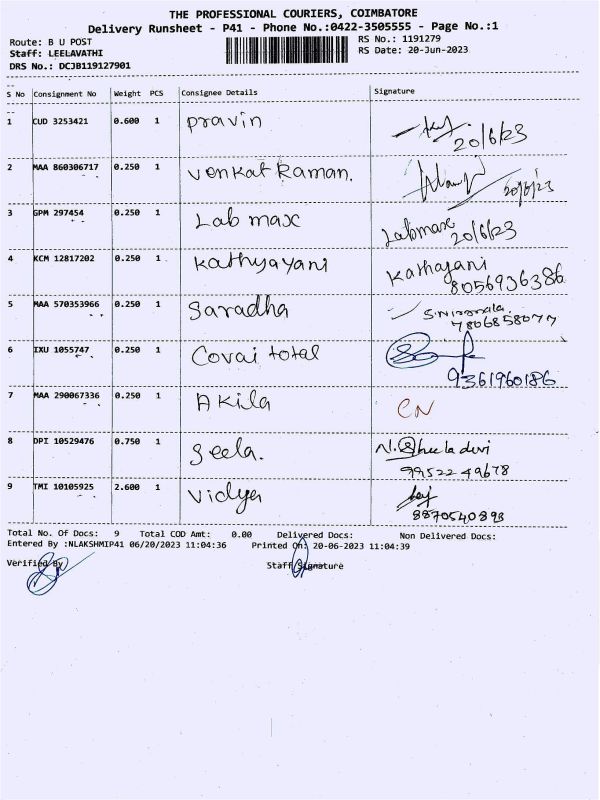 THE PROFESSIONAL COURIERS, COIMBATORE
Delivery Runsheet - P41 - Phone No.:0422-3505555 - Page No.:1
Route: B U POST
Staff: LEELAVATHI
DRS No.: DCJB119127901
RS No.: 1191279
RS Date: 20-Jun-2023
S No Consignment No Weight PCS Consignee Details Signature
1 CUD 3253421 0.600 1 pravin 20/6/23
2 MAA 860306717 0.250 1 Venkat Raman. 20/6/23
3 GPM 297454 0.250 1 Lab max Labmax 20/6/23
4 KCM 12817202 0.250 1 Kathyayani Kathayani
8056936386
5 MAA 570353966 0.250 1 Saradha S.Nirmala.
7806858077
6 IXU 1055747 0.250 1 Covai total
9361960186
7 MAA 290067336 0.250 1 Akila CN
8 DPI 10529476 0.750 1 Seela. N. Sheela devi
99522 49678
9 TMI 10105925 2.600 1 Vidya
8870540893
Total No. Of Docs: 9 Total COD Amt: 0.00 Delivered Docs: Non Delivered Docs:
Entered By :NLAKSHMIP41 06/20/2023 11:04:36 Printed On: 20-06-2023 11:04:39
Verified By Staff Signature